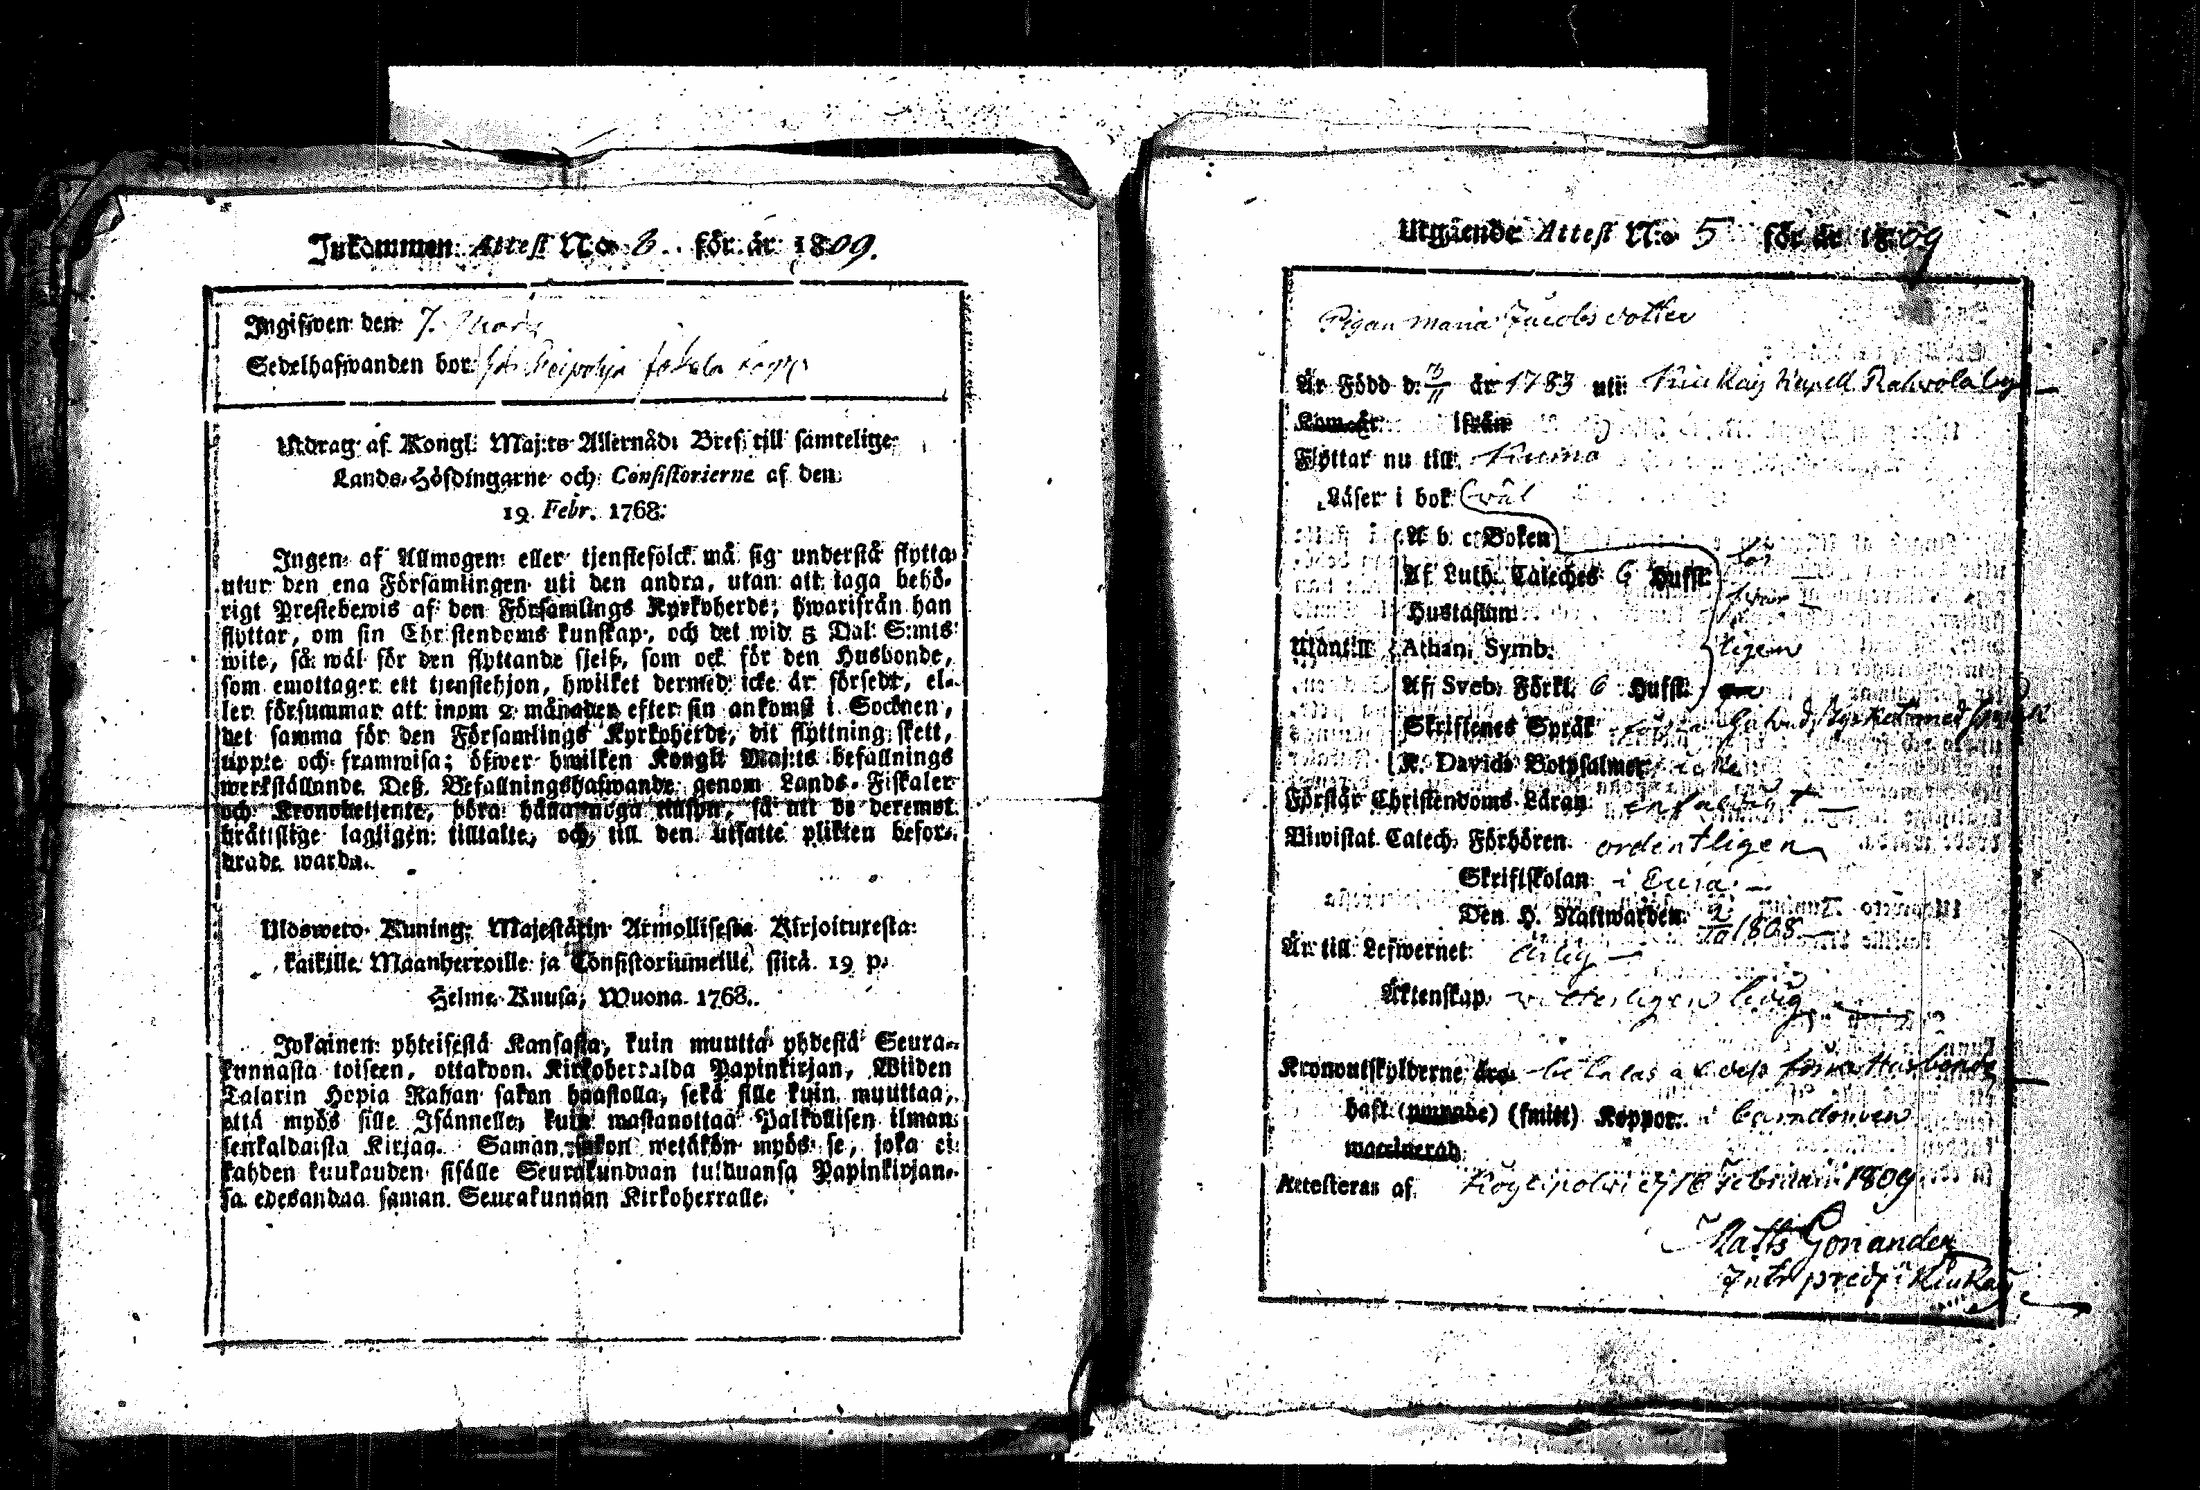 Inkommen Attest N:o 8. för år 1809.
Ingifwen den 7. Mars
Sedelhafwanden bor
Utdrag af Kongl. Maj:ts Allernåd: Bref till samtelige
Lands-Höfdingarne och Consistorierne af den
19 Febr. 1768.
Ingen af Allmogen eller tjenstefolck må sig understå flytta
utur den ena Församlingen uti den andra, utan att taga behö-
rigt Prestebewis af den Församlings Kyrkoherde, hwarifrån han
flyttar, om sin Christendoms kunskap, och det wid 5 Dal. S:mts
wite, så wäl för den flyttande sjelf, som ock för den Husbonde,
som emottager ett tjenstehjon, hwilket dermed icke är försedt, el-
ler försummar att inom 2 månader efter sin ankomst i Socknen,
det samma för den Församlings Kyrkoherde, dit flyttning skett,
uppte och framwisa; öfwer hwilken Kongl. Maj:ts befallnings
werkställande Deß Befallningshafwande genom Lands-Fiskaler
och Kronobetjente, böra hålla noga tillsyn, så att de deremot
brättslige lagligen tilltalte, och till den utsatte plikten befor-
drade warda.
Ulosweto Kuning: Majestätin Armollisesta Kirjoituxesta
kaikille Maanherroille ja Consistoriumeille, siitä 19 p.
Helme-Kuusa, Wuona 1768.
Jokainen yhteisestä Kansasta, kuin muutta yhdestä Seura-
kunnasta toiseen, ottakoon Kirkoherralda Papinkirjan, Wiiden
Talarin Hopia Rahan sakon haastolla, sekä sille kuin muuttaa,
että myös sille Isännelle, kuin wastanottaa Palkollisen ilman
senkaldaista Kirjaa. Saman sakon wetäkön myös se, joka ei
kahden kuukauden sisälle Seurakundaan tulduansa Papinkirjan-
sa edesandaa saman Seurakunnan Kirkoherralle.
Utgående Attest N:o 5 för år 1809
Pigan Maria Jacobs dotter
Är Född d. år 1783 uti Kiukais Kapell Rahvola by
Kom år ifrån
Flyttar nu till Kiumo
Läser i bok väl
A b c Boken
Af Luth. Cateches 6 Hufst.
Hustaflum
Utantill Athan. Symb.
Af Sveb. Förkl. 6 Hufst.
Skriftenes Språk
K. Davids Botpsalmer
Förstår Christendoms Läran enfaldigt
Biwistat Catech. Förhören ordentligen
Skriftskolan i Eura
Den H. Nattwarden 1808
Är till Lefwernet ärlig
Äktenskap witterligen ledig
Kronoutskylderne äro betalas af dess förra Husbonde
haft (ympade) (smitt) Koppor i barndomen
waccinerad
Attesteras af Köylipolvi d 18 Februarii 1809
Matts Gonander